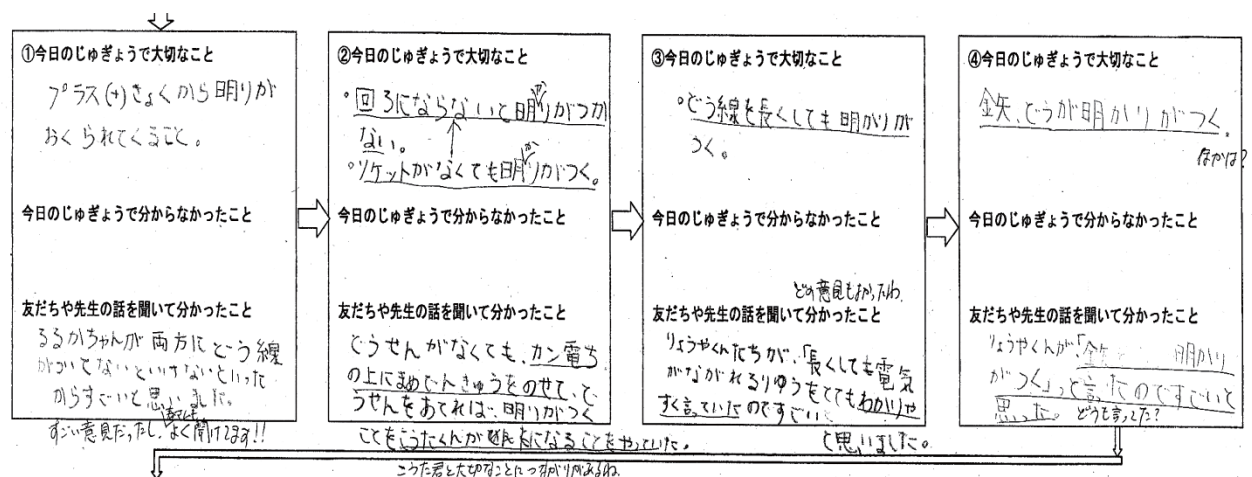 ①今日のじゅぎょうで大切なこと
プラス(+)きょくから明りが
おくられてくること。
今日のじゅぎょうで分からなかったこと
友だちや先生の話を聞いて分かったこと
るるかちゃんが両方にどう線
がついてないといけないといった
からすごいと思いました。
すごい意見だったし、よく聞けてます!!
②今日のじゅぎょうで大切なこと
・回ろにならないと明かりがつか
ない。
・ソケットがなくても明かりがつく。
今日のじゅぎょうで分からなかったこと
友だちや先生の話を聞いて分かったこと
どうせんがなくても、カン電ち
の上にまめでんきゅうをのせて、ど
うせんをあてれば、明りがつく
ことをこうたくんが
になることをやっていた。
こうた君と大切なことにつながりがあるね
③今日のじゅぎょうで大切なこと
・どう線を長くしても明がりが
つく。
今日のじゅぎょうで分からなかったこと
どの意見もよかったわ
友だちや先生の話を聞いて分かったこと
りょうやくんたちが、「長くしても電気
がながれるりゆうをとてもわかりや
すく言っていたのですごい
と思いました。
④今日のじゅぎょうで大切なこと
鉄、どうが明かりがつく。
ほかは?
今日のじゅぎょうで分からなかったこと
友だちや先生の話を聞いて分かったこと
りょうやくんが「鉄 明かり
がつく」っと言ったのですごいと
思った。
どうも言ってた?